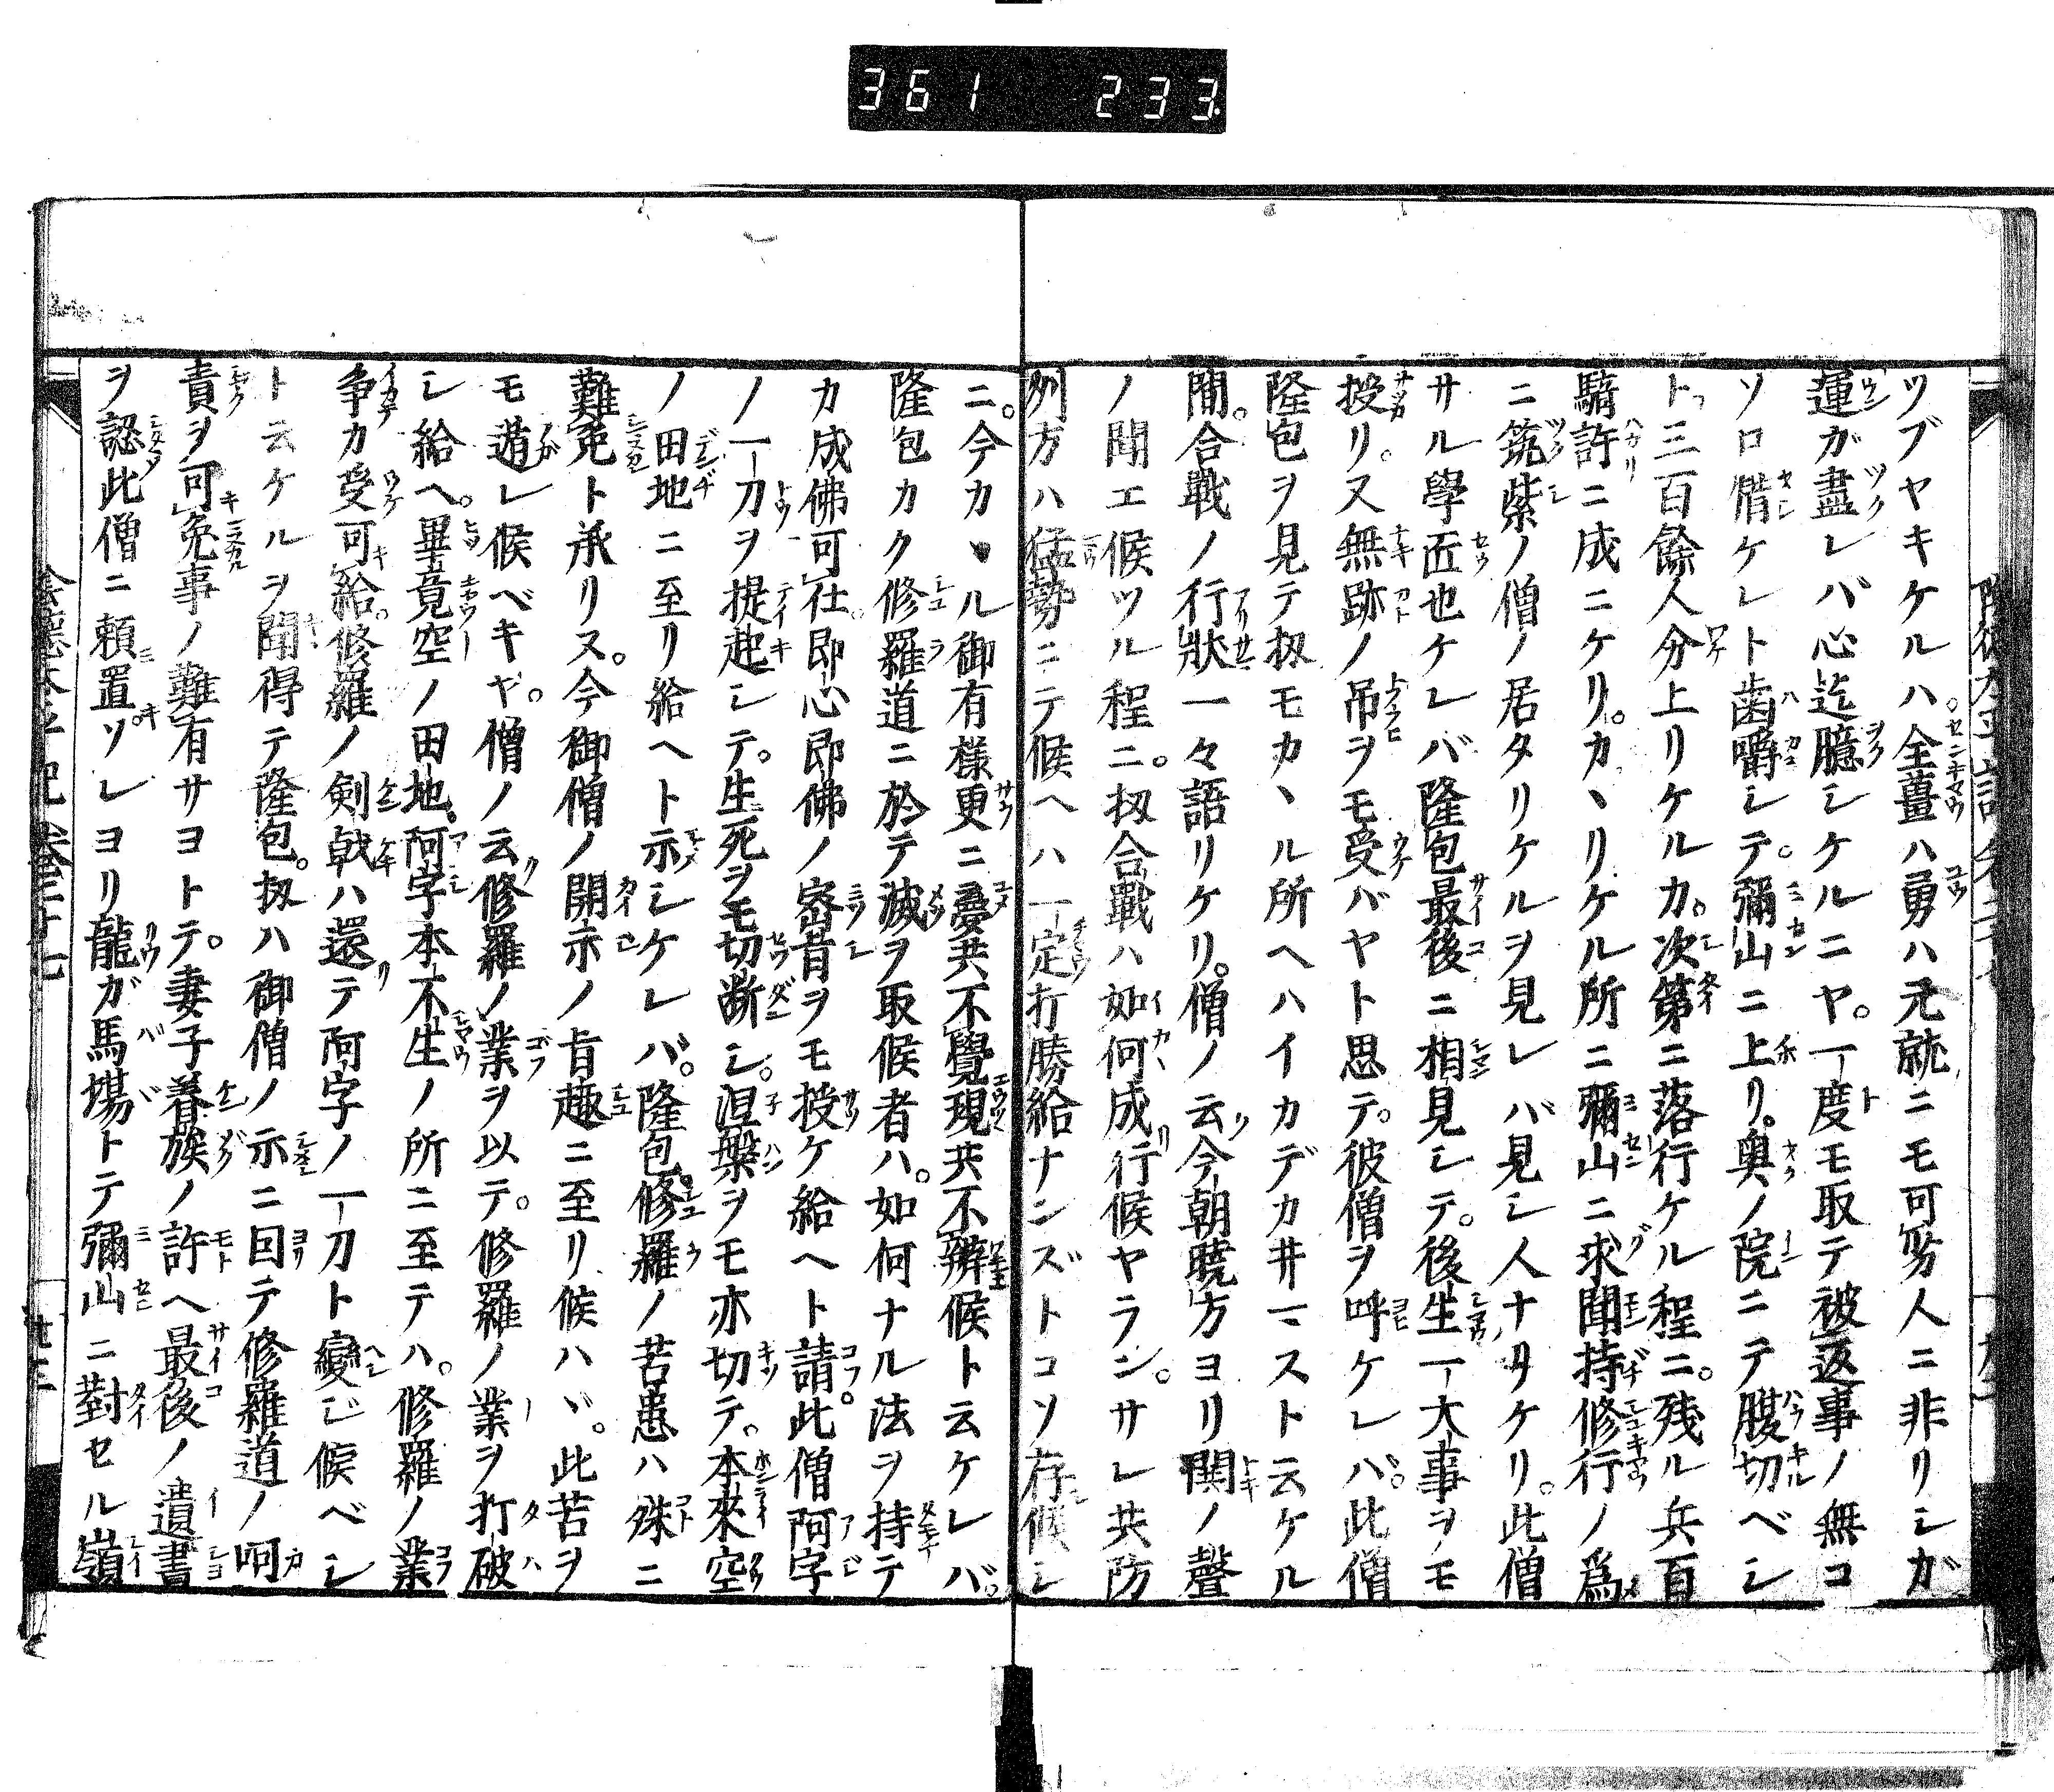 361 233
ツブヤキケルハ。全薑ハ勇ハ元就ニモ可劣人ニ非リシガ
運ガ盡レバ心迄臆シケルニヤ。一度モ取テ被返事ノ無コ
ソ口惜ケレト歯嚼シテ。彌山ニ上リ。奥ノ院ニテ腹切ベシ
ト三百餘人分上リケルカ。次第ニ落行ケル程ニ。残ル兵百
騎許ニ成ニケリ。カヽリケル所ニ彌山ニ求聞持修行ノ爲
ニ筑紫ノ僧ノ居タリケルヲ見レバ見シ人ナタケリ。此僧
サル學匠也ケレバ隆包最後ニ相見シテ。後生一大事ヲモ
授リ。又無跡ノ吊ヲモ受バヤト思テ。彼僧ヲ呼ケレバ。此僧
隆包ヲ見テ扨モカヽル所ヘハイカデカ井ースト云ケル
間。合戰ノ行狀一々語リケリ。僧ノ云今朝曉方ヨリ鬨ノ聲
ノ聞エ候ツル程ニ。扨合戰ハ如何成行候ヤラン。サレ共防
州方ハ猛勢ニテ候ヘハ一定打勝給ナンズトコソ存候シ
ニ。今カヽル御有樣更ニ夢共不覺現共不辨候ト云ケレバ。
隆包カク修羅道ニ於テ滅ヲ取候者ハ。如何ナル法ヲ持テ
カ成佛可仕。即心即佛ノ密旨ヲモ授ケ給ヘト請コフ。此僧阿字
ノ一刀ヲ提起シテ。生死ヲモ切断シ。涅槃ヲモ亦切テ。本來空
ノ田地ニ至リ給ヘト示シケレバ。隆包。修羅ノ苦患ハ殊ニ
難免ト承リス。今御僧ノ開示ノ旨趣ニ至リ候ハヾ。此苦ヲ
モ遁レ候ベキヤ。僧ノ云修羅ノ業ヲ以テ。修羅ノ業ヲ打破
シ給ヘ。畢竟空ノ田地。阿字本不生ノ所ニ至テハ。修羅ノ業
争カ受可給。修羅ノ剣戟ハ還テ阿字ノ一刀ト變ジ候ベシ
ト云ケルヲ聞得テ隆包。扨ハ御僧ノ示ニ因テ修羅道ノ呵
責ヲ可免事ノ難有サヨトテ。妻子眷族ノ許ヘ最後ノ遺書
ヲ認此僧ニ頼置ソレヨリ龍ガ馬場トテ彌山ニ對セル嶺